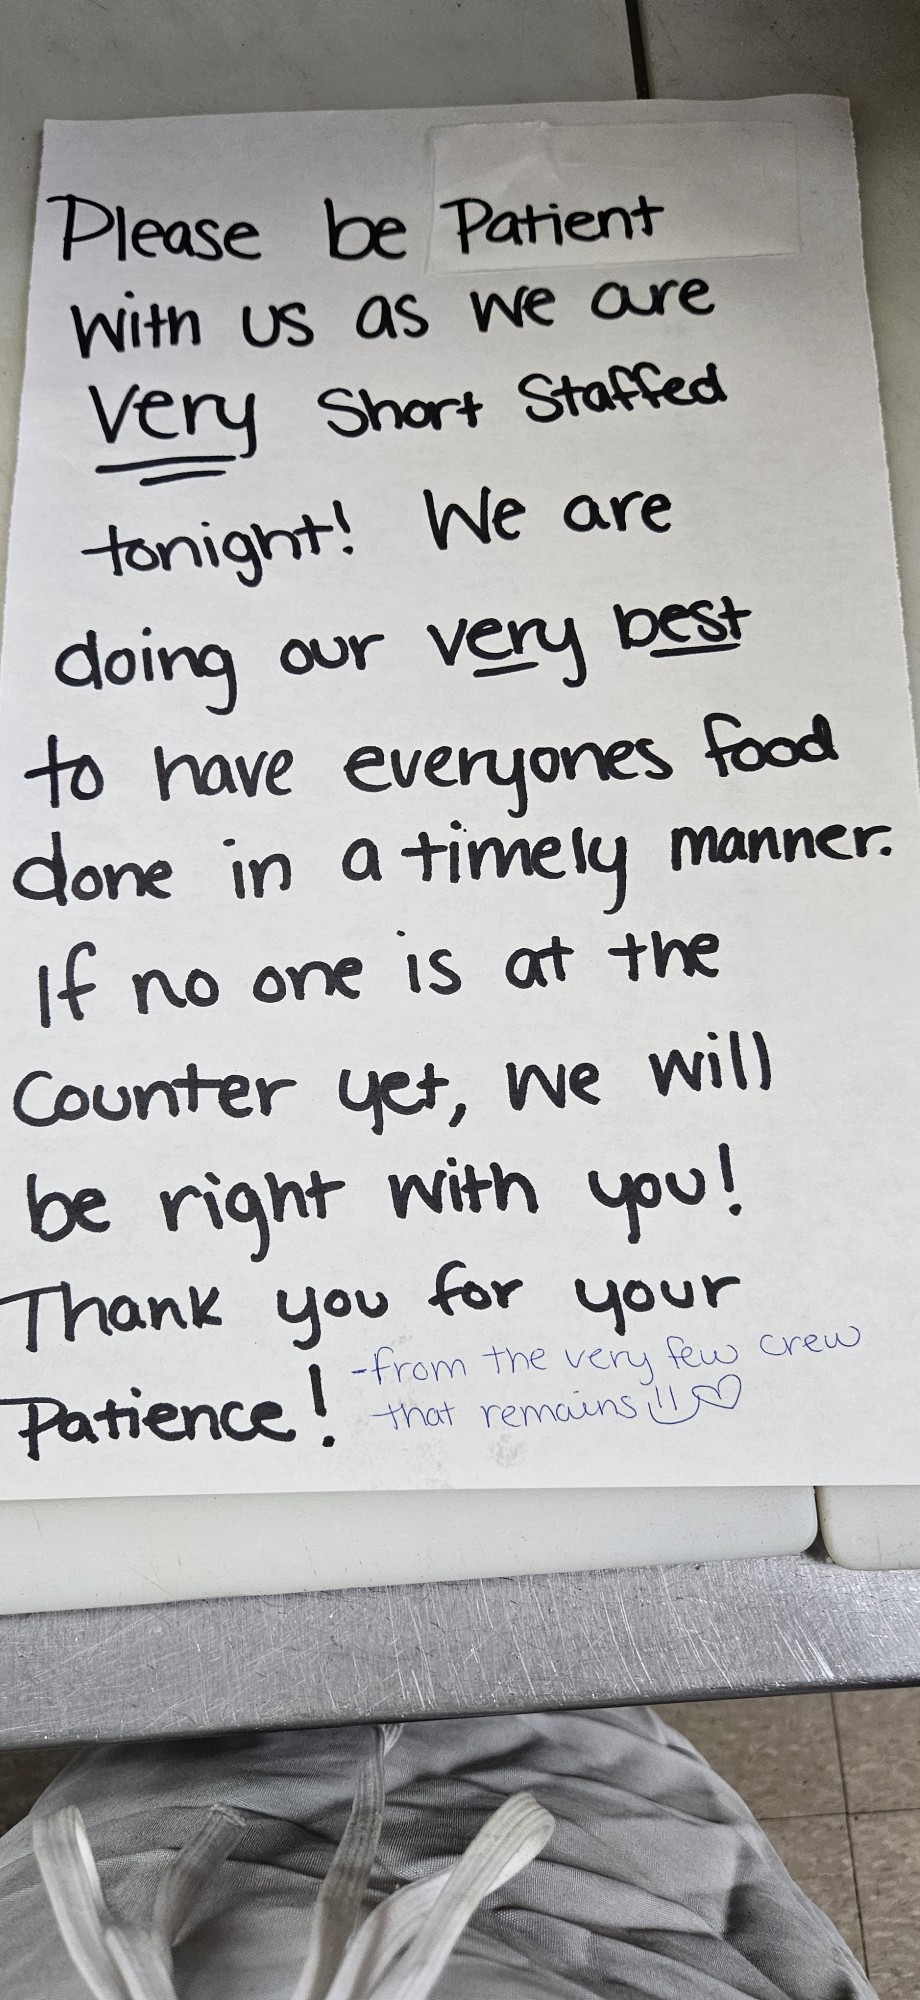 Please be Patient
With us as we are
very Short Staffed
tonight! We are
doing our very best
to have everyones food
done in a timely manner.
If no one is at the
Counter yet, we will
be right with you!
Thank you for your
Patience!
-from the very few crew
that remains